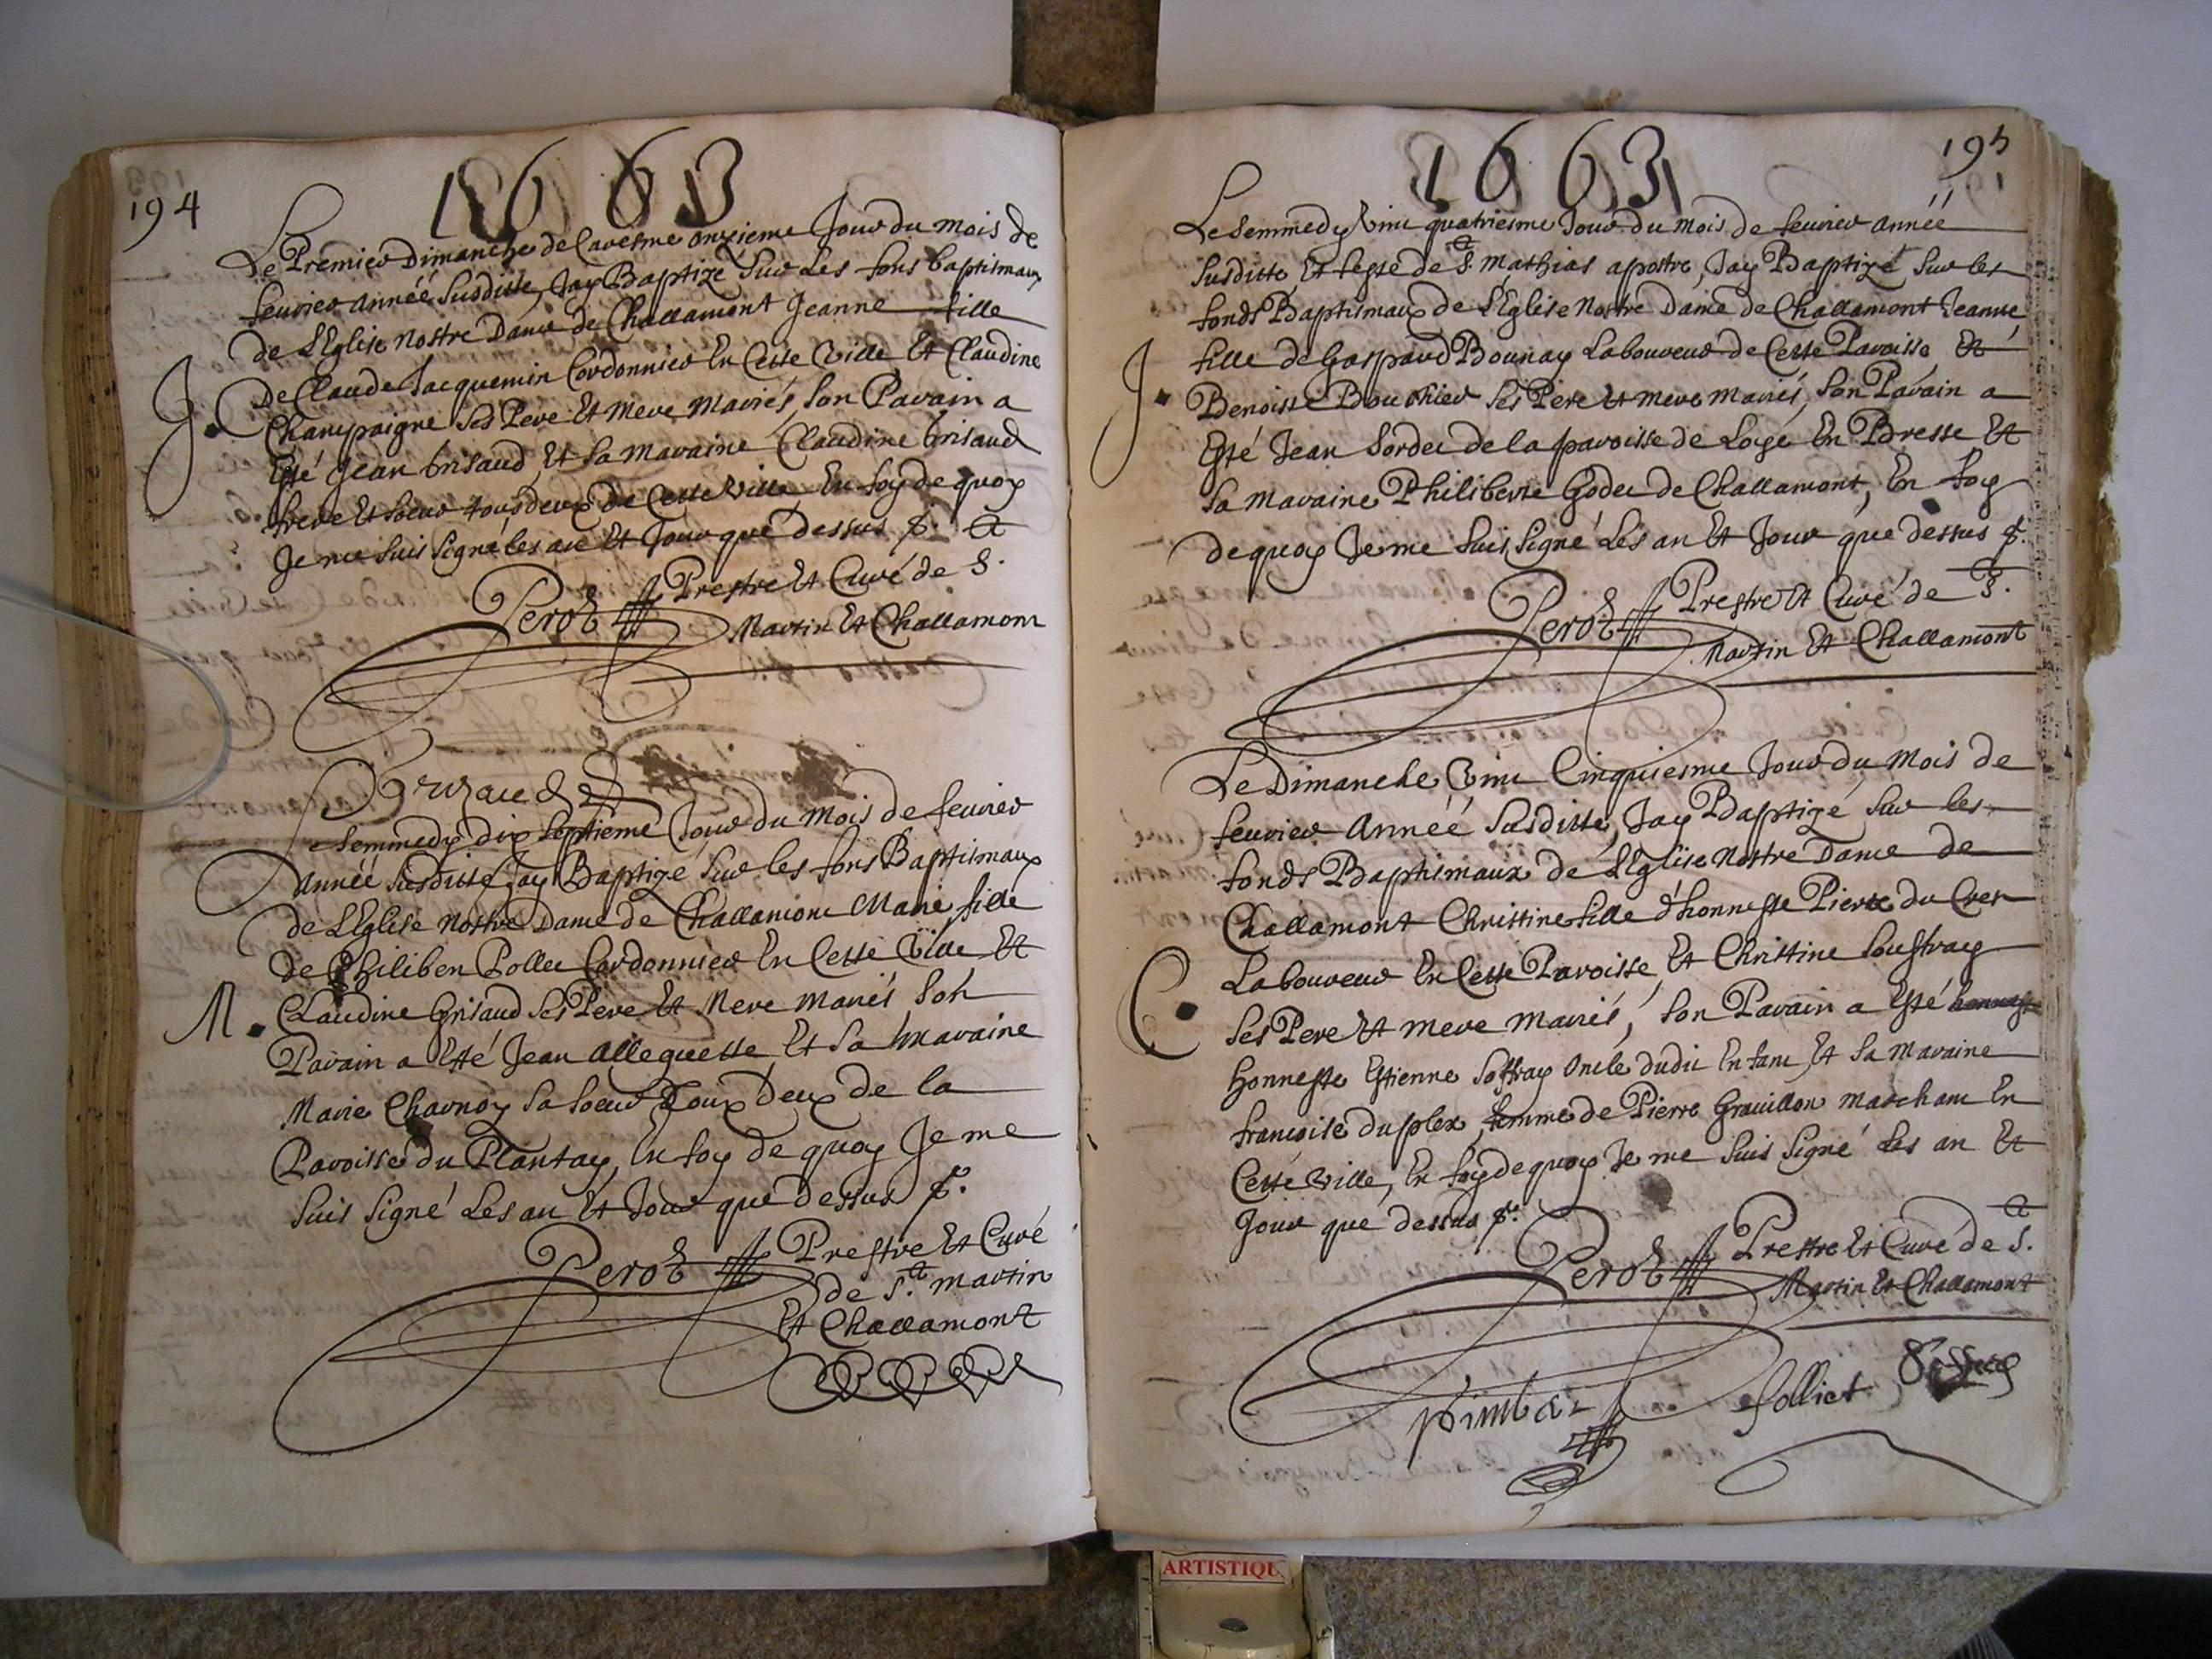 194
1663
Le Premier Dimanche de Caresme onzieme Jour du mois de
feurier année Susditte, Jay Baptizé Sur Les fons baptismaux
de L'Eglise nostre Dame de Challamont Jeanne fille
De Claude Jacquemin Cordonnier En Cette Ville Et Claudine
J.
Champaigne Ses Pere Et Mere mariés, Son Parain a
Esté Jean Grisaud Et Sa Maraine Claudine Grisaud
frere Et soeur tous deux de Cette Ville En foy de quoy
Je me suis Signé Les an Et Jour que dessus
Perot Prestre Et Curé de St.
Martin Et Challamont
Le Semmedy dix Septieme Jour du mois de feurier
Année Susditte Jay Baptizé Sur les fons Baptismaux
de L'Eglise nostre Dame de Challamont Marie fille
de Philibert Pollet Cordonnier En Cette Ville Et
M.
Claudine Grisaud Ses Pere Et Mere mariés Son
Parain a Esté Jean Allequette Et Sa Maraine
Marie Charnoy Sa Soeur Toux Deux de la
Paroisse du Plantay, En foy de quoy Je me
Suis Signé Les an Et Jour que dessus
Perot Prestre Et Curé
de St. Martin
Et Challamont
195
1663
Le Semmedy Vint quatriesme Jour du mois de feurier année
Susditte Et feste de St. Mathias apostre, Jay Baptizé Sur les
fonds Baptismaux de L'Eglise Nostre Dame de Challamont Jeanne
fille de Gaspard Bounay Laboureur de Cette Paroisse Et
J.
Benoiste Bouthier Ses Pere Et mere mariés, Son Parain a
Esté Jean Sordet de la paroisse de Loye En Bresse Et
Sa Maraine Philiberte Godet de Challamont, En foy
de quoy Je me Suis Signé Les an Et Jour que dessus
Perot Prestre Et Curé de St.
Martin Et Challamont
Le Dimanche Vint Cinquiesme Jour du Mois de
feurier Année Susditte, Jay Baptizé Sur les
fonds Baptismaux de L'Eglise Nostre Dame de
Challamont Christine fille d'honneste Pierre du Cret
Laboureur En Cette Paroisse, Et Christine Souffray
C.
Ses Pere Et mere mariés, Son Parain a Esté
honneste Estienne Soffray Oncle dudit Enfant, Et Sa Maraine
francoise duplex femme de Pierre Grauillon marchant En
Cette Ville, En foy de quoy Je me Suis Signé Les an Et
Jour que dessus
Perot Prestre Et Curé de St.
Martin Et Challamont
Jolliet
ARTISTIQU